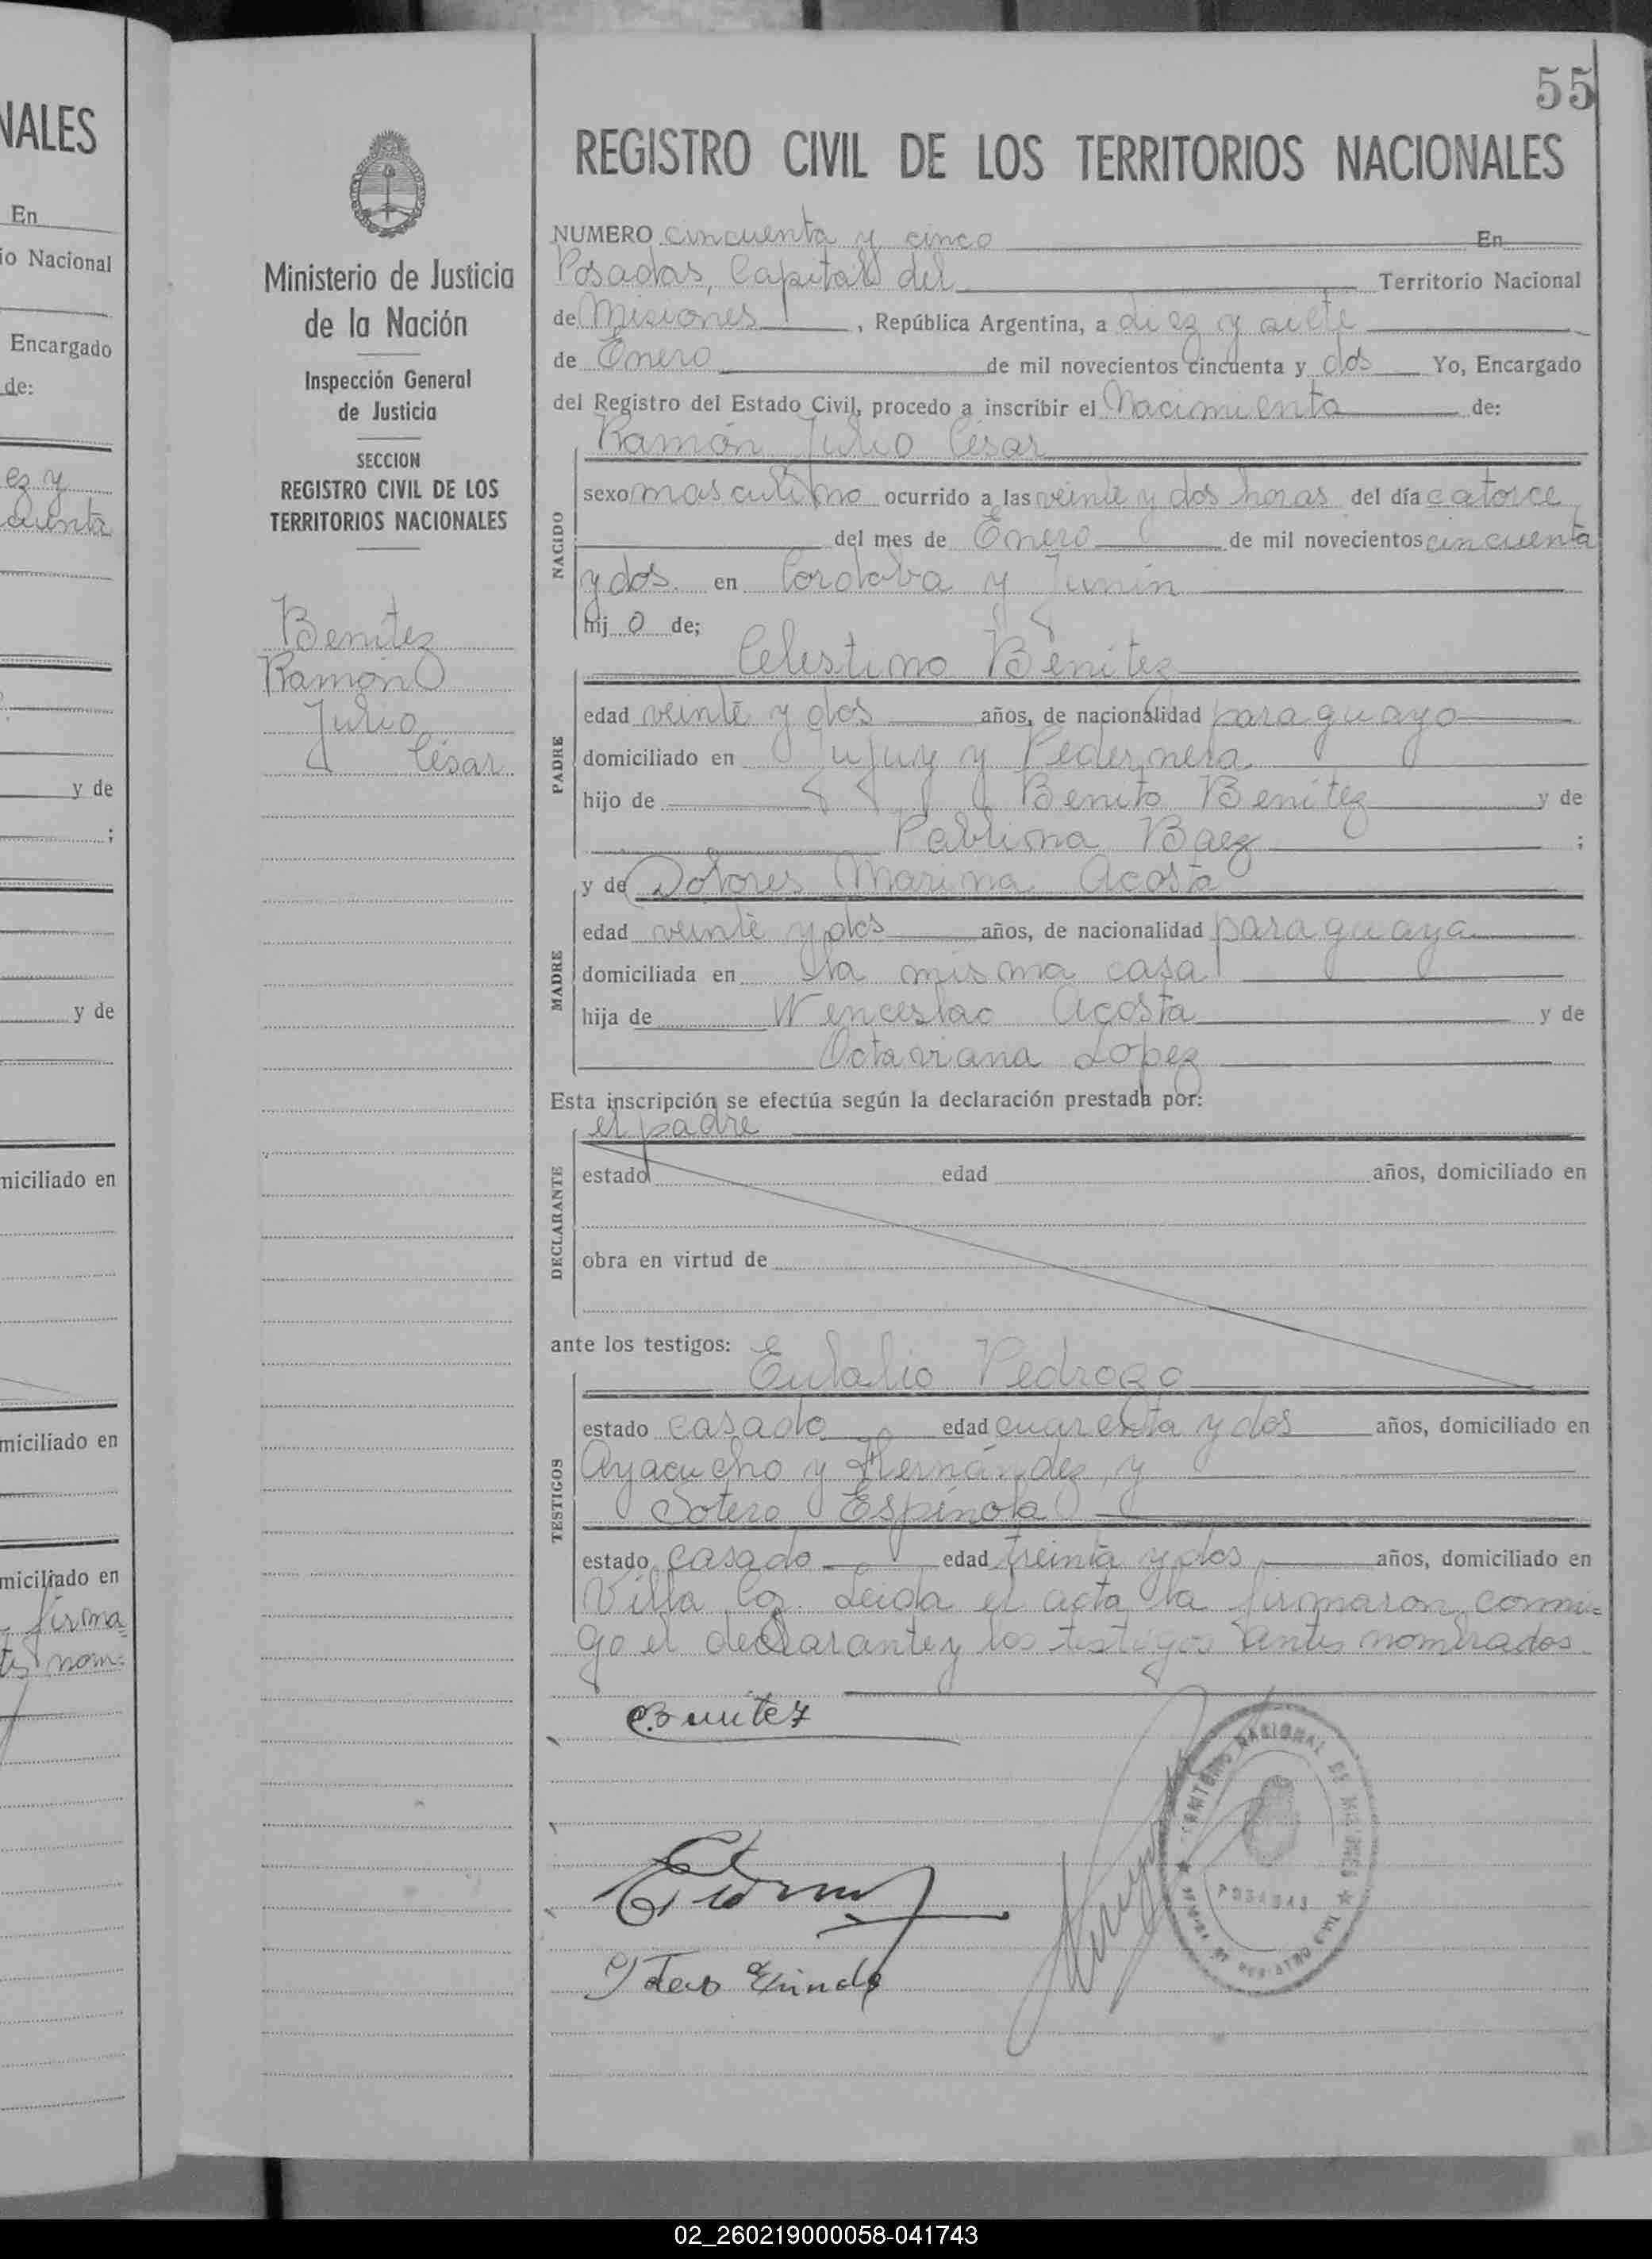 NALES
En
io Nacional
Encargado
de:
ez y
cuenta
y de
;
y de
miciliado en
miciliado en
miciliado en
firma
tes nom:
Ministerio de Justicia
de la Nación
Inspección General
de Justicia
SECCION
REGISTRO CIVIL DE LOS
TERRITORIOS NACIONALES
Benítez
Ramón
Julio
César
55
REGISTRO CIVIL DE LOS TERRITORIOS NACIONALES
NUMERO cincuenta y cinco En
Posadas, Capital del Territorio Nacional
de Misiones, República Argentina, a diez y siete
de Enero de mil novecientos cincuenta y dos Yo, Encargado
del Registro del Estado Civil, procedo a inscribir el Nacimiento de:
Ramón Julio César
NACIDO
sexo masculino ocurrido a las veinte y dos horas del día catorce
del mes de Enero de mil novecientos cincuenta
y dos. en Córdoba y Junín
hij o de;
Celestino Benítez
PADRE
edad veinte y dos años, de nacionalidad paraguayo
domiciliado en Jujuy y Pedernera
hijo de Benito Benítez y de
Pablina Baez ;
y de Dolores Marina Acosta
MADRE
edad veinte y dos años, de nacionalidad paraguaya
domiciliada en la misma casa
hija de Wenceslao Acosta y de
Octaviana Lopez
Esta inscripción se efectúa según la declaración prestada por:
el padre
DECLARANTE
estado edad años, domiciliado en
obra en virtud de
ante los testigos:
Eulalio Pedrozo
TESTIGOS
estado casado edad cuarenta y dos años, domiciliado en
Ayacucho y Hernández, y
Sotero Espínola
estado casado edad treinta y dos años, domiciliado en
Villa Coz. Leída el acta la firmaron conmi=
go el declarante y los testigos antes nombrados
C. Benitez
TERRITORIO NACIONAL DE MISIONES
POSADAS
02_260219000058-041743